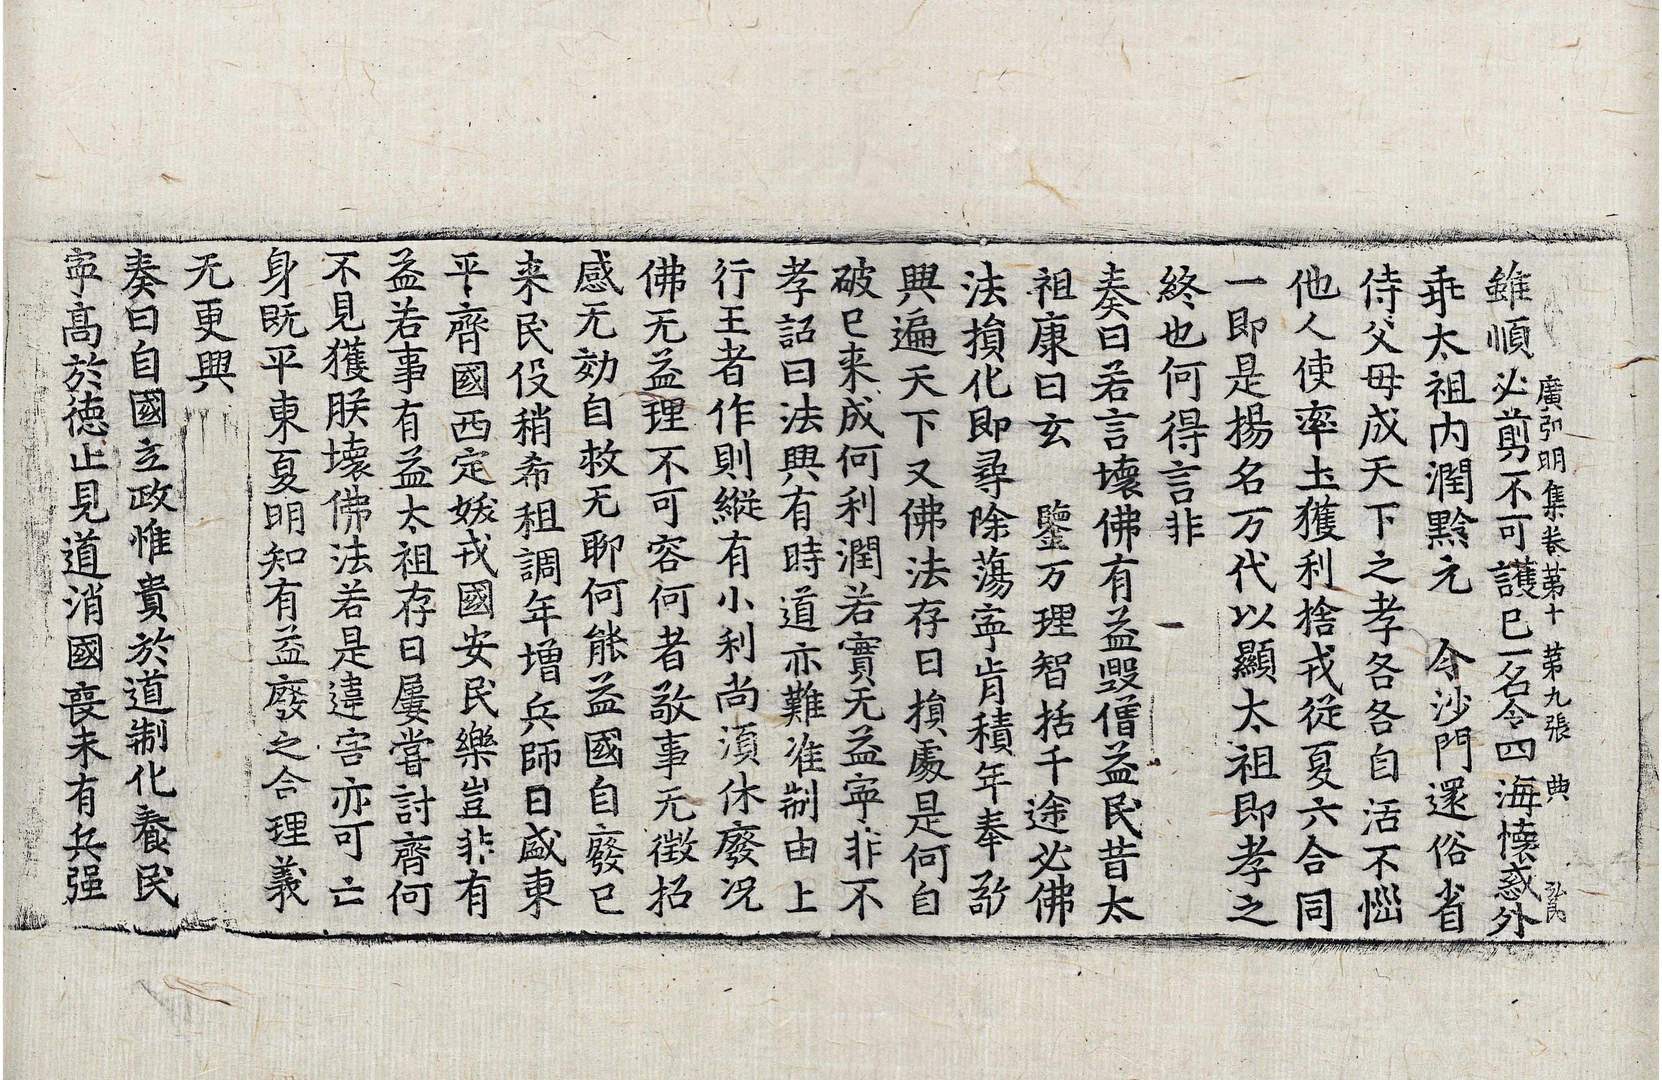 廣弘明集卷第十 第九張 典 弘民
雖順必剪不可護已一名令四海懐惑外
乖太祖内潤黔元 令沙門還俗省
侍父母成天下之孝各各自活不惱
他人使率土獲利捨戎從夏六合同
一即是揚名万代以顯太祖即孝之
終也何得言非
奏曰若言壊佛有益毀僧益民昔太
祖康日玄 鑒万理智括千途必佛
法損化即尋除蕩寧肯積年奉敬
興遍天下又佛法存日損處是何自
破已来成何利潤若實无益寧非不
孝詔曰法興有時道亦難准制由上
行王者作則縱有小利尚須休廢况
佛无益理不可容何者敬事无徵招
感无効自救无聊何能益國自廢已
来民役稍希租調年増兵師日盛東
平齊國西定妖戎國安民樂豈非有
益若事有益太祖存日屢嘗討齊何
不見獲朕壊佛法若是違害亦可亡
身既平東夏明知有益廢之合理義
无更興
奏曰自國立政惟貴於道制化養民
寧高於徳止見道消國喪未有兵强